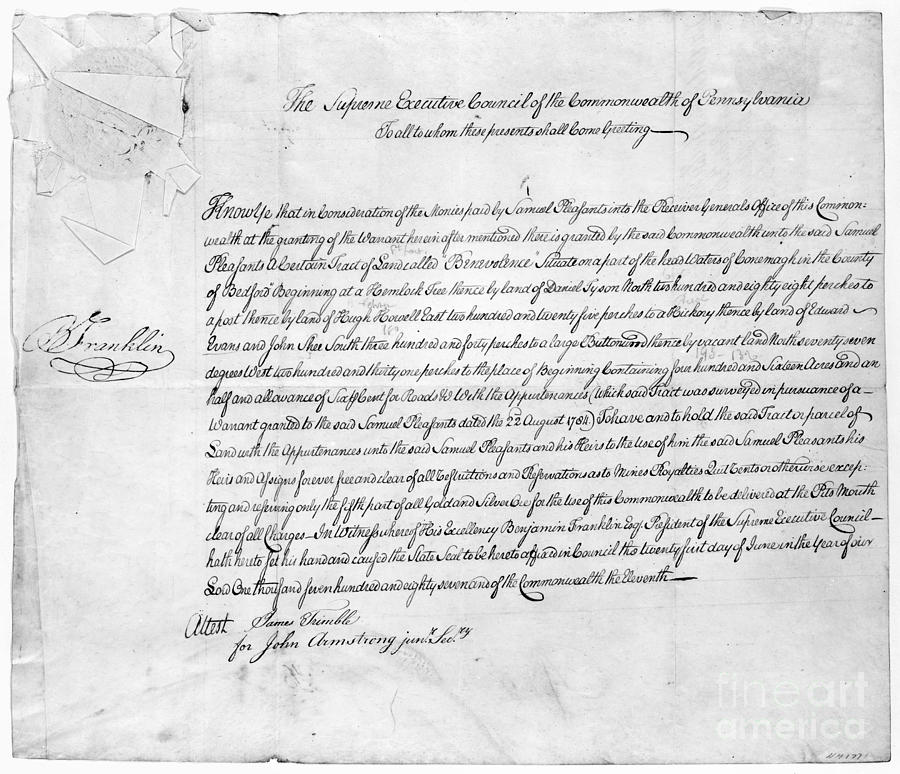 The Supreme Executive Council of the Commonwealth of Pennsylvania
To all to whom these presents shall Come Greeting
Know Ye that in Consideration of the Monies paid by Samuel Pleasants into the Receiver Generals Office of this Common-
wealth at the granting of the Warrant herein after mentioned there is granted by the said Commonwealth unto the said Samuel
Pleasants A Certain Tract of Land called "Benevolence" Situate on a part of the head Waters of Conemagh in the County
of Bedford" Beginning at a Hemlock Tree thence by land of Daniel Tyson North two hundred and eighty eight perches to
a post thence by land of Hugh Howell East two hundred and twenty five perches to a Hickory thence by land of Edward
Evans and John Shee South three hundred and forty perches to a large Buttonwood thence by vacant land North seventy seven
degrees West two hundred and thirty one perches to the place of Beginning Containing four hundred and Sixteen Acres and an
half and allowance of Six ⅌ Cent for Roads &c With the Appurtenances (Which said Tract was surveyed in pursuance of a
Warrant granted to the said Samuel Pleasants dated the 22 August 1784) To have and to hold the said Tract or parcel of
Land with the Appurtenances unto the said Samuel Pleasants and his Heirs to the Use of him the said Samuel Pleasants his
Heirs and Assigns forever free and clear of all Restrictions and Reservations as to Mines Royalties Quit Rents or otherwise excep-
ting and reserving only the fifth part of all Gold and Silver Ore for the use of this Commonwealth to be delivered at the Pits Mouth
clear of all Charges In Witness whereof His Excellency Benjamin Franklin Esqr. President of the Supreme Executive Council
hath hereto set his hand and caused the State Seal to be hereto affixed in Council the twenty first day of June in the Year of our
Lord One thousand seven hundred and eighty seven and of the Commonwealth the Eleventh
B Franklin
Attest James Trimble
for John Armstrong junr. Secry
fine art
america